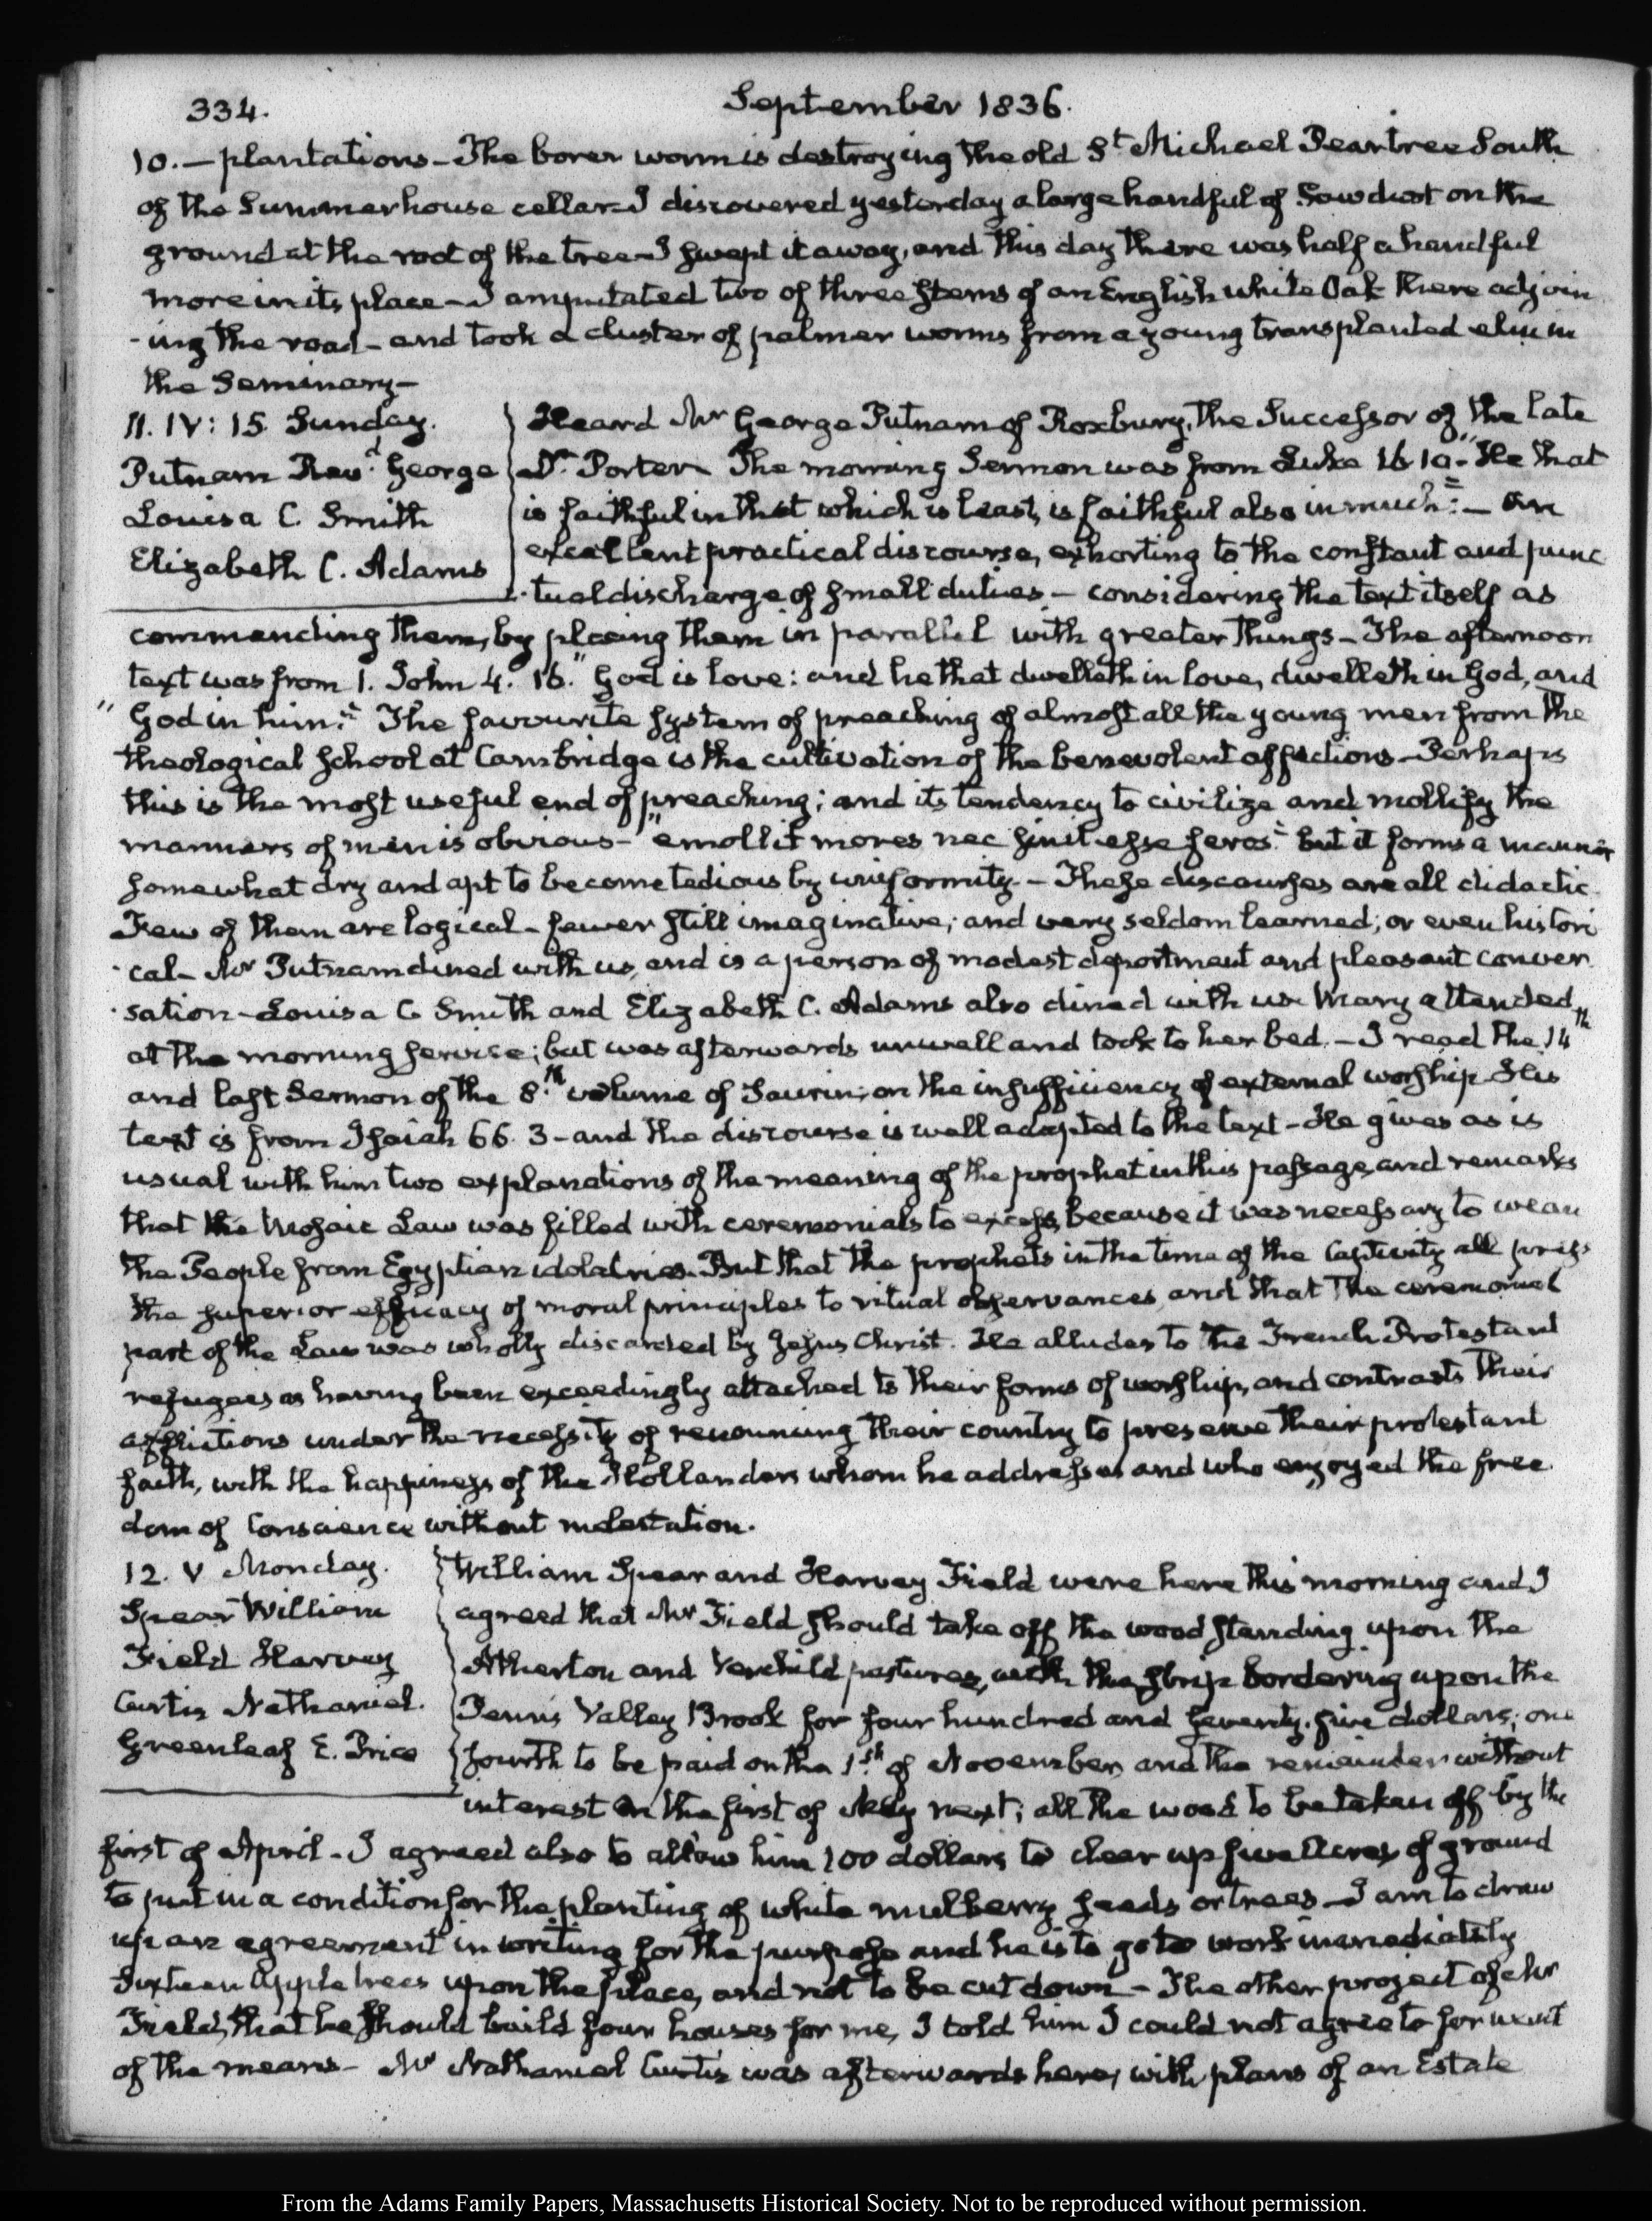 334.
September 1836.
10. — plantations – The borer worm is destroying the old St Michael Peartree South
of the Summerhouse cellar – I discovered yesterday a large handful of Sawdust on the
ground at the root of the tree – I swept it away, and this day there was half a handful
more in its place – I amputated two of three stems of an English white Oak there adjoin
-ing the road – and took a cluster of palmer worms from a young transplanted elm in
the Seminary –
11. IV: 15 Sunday.
Putnam Revd. George
Louisa C. Smith
Elizabeth C. Adams
Heard Mr George Putnam of Roxbury, the Successor of the late
Dr. Porter The morning Sermon was from Luke 16 10. "He that
is faithful in that which is least, is faithful also in much" – an
excellent practical discourse, exhorting to the constant and punc
-tual discharge of small duties – considering the text itself as
commending them, by placing them in parallel with greater things – The afternoon
text was from 1. John 4. 16. "God is love: and he that dwelleth in love, dwelleth in God, and
"God in him." The favourite system of preaching of almost all the young men from the
theological school at Cambridge is the cultivation of the benevolent affections – Perhaps
this is the most useful end of preaching; and its tendency to civilize and mollify the
manners of men is obvious – "emollit mores nec sinit esse feros" but it forms a manner
somewhat dry and apt to become tedious by uniformity. – These discourses are all didactic.
Few of them are logical – fewer still imaginative; and very seldom learned; or even histori
-cal – Mr Putnam dined with us, and is a person of modest deportment and pleasant conver
-sation – Louisa C Smith and Elizabeth C. Adams also dined with us Mary attended
at the morning service; but was afterwards unwell and took to her bed. – I read the 14th
and last Sermon of the 8.th volume of Saurin; on the insufficiency of external worship His
text is from Isaiah 66. 3 – and the discourse is well adapted to the text – He gives as is
usual with him two explanations of the meaning of the prophet in this passage, and remarks
that the Mosaic Law was filled with ceremonials to excess, because it was necessary to wean
the People from Egyptian idolatries. But that the prophets in the time of the Captivity all
the superior efficacy of moral principles to ritual observances, and that the ceremonial
part of the Law was wholly discarded by Jesus Christ. He alludes to the French Protestant
refugees as having been exceedingly attached to their forms of worship, and contrasts their
afflictions under the necessity of renouncing their country to preserve their protestant
faith, with the happiness of the Hollanders whom he addresses and who enjoyed the free
dom of Conscience without molestation.
12. V Monday.
Spear William
Field Harvey
Curtis Nathaniel.
Greenleaf E. Price
William Spear and Harvey Field were here this morning and I
agreed that Mr Field should take off the wood standing upon the
Atherton and Verchild pastures, with the strip bordering upon the
Penn's Valley Brook for four hundred and seventy-five dollars; one
fourth to be paid on the 1.st of November, and the remainder without
interest on the first of May next; all the wood to be taken off by the
first of April – I agreed also to allow him 100 dollars to clear up five acres of ground
to put in a condition for the planting of white mulberry seeds or trees – I am to draw
up an agreement in writing for the purpose and he is to go to work immediately
Sixteen Apple trees upon the place, and not to be cut down – The other project of Mr
Field, that he should build four houses for me, I told him I could not agree to for want
of the means – Mr Nathaniel Curtis was afterwards here, with plans of an Estate
From the Adams Family Papers, Massachusetts Historical Society. Not to be reproduced without permission.